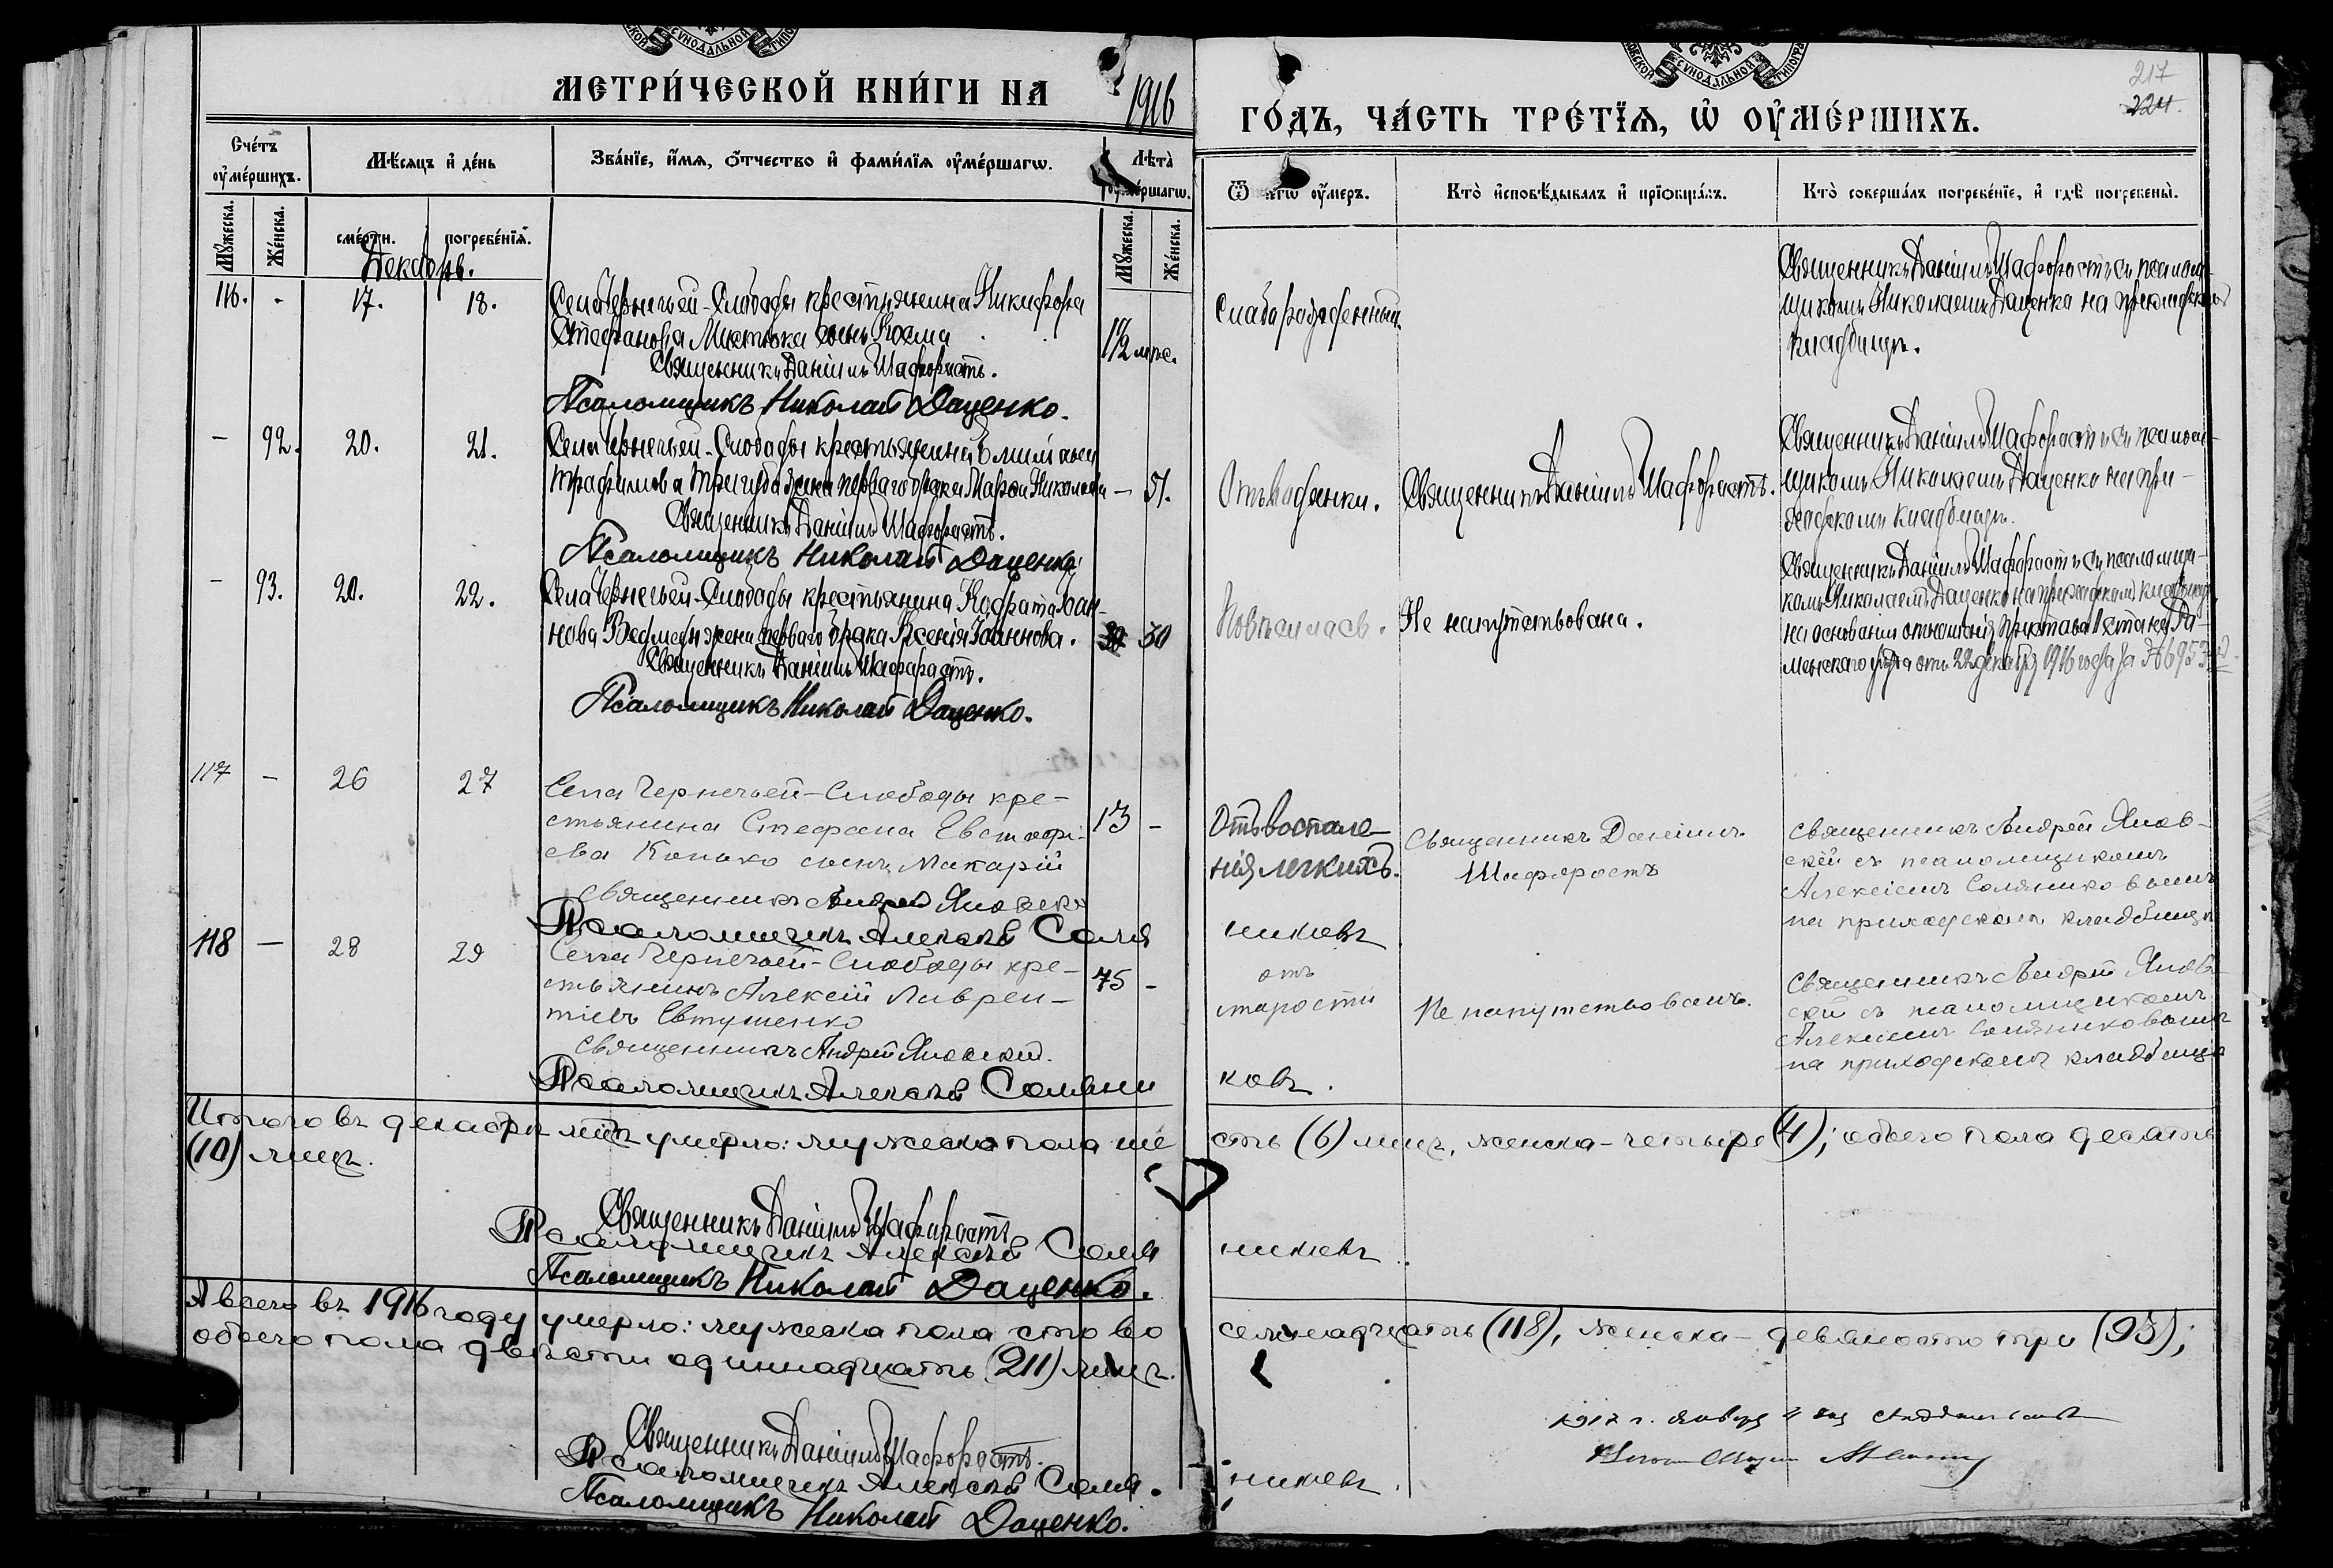 СѴНОДАЛЬНОЙ
СѴНОДАЛЬНОЙ
МЕТРИ́ЧЕСКОЙ КНИ́ГИ НА 1916 ГО́ДЪ, ЧА́СТЬ ТРЕ́ТЇѦ, Ѡ ОУ҆МЕ́РШИХЪ.
217
224.
Сче́тъ оу҆ме́ршихъ.
Мѣ́сяцъ и҆ де́нь
Зва́нїе, и҆́мѧ, ѻ҆́тчество и҆ фами́лїѧ оу҆ме́ршагѡ.
Лѣта̀ оу҆ме́ршагѡ.
Ѿ чегѡ̀ оу҆́меръ.
Кто̀ и҆сповѣ́дывалъ и҆ прїѡбща́лъ.
Кто̀ соверша́лъ погребе́нїе, и҆ гдѣ̀ погребены̀.
Мꙋ́жеска.
Же́нска.
сме́рти.
погребе́нїѧ.
Мꙋ́жеска.
Же́нска.
Декабрь.
116. - 17. 18.
Села Чернечьей-Слободы крестьянина Никифора
Стефанова сынъ Косма
1½ мѣс.
Священникъ Даніилъ Шафорастъ.
Псаломщикъ Николай Даценко.
Слаборожденный.
Священникъ Даніилъ Шафорастъ съ псалом-
щикомъ Николаемъ Даценко на приходскомъ
кладбищѣ.
- 92. 20. 21.
Села Чернечьей-Слободы крестьянина Емиліана
Трофимова Тригуба жена перваго брака Марѳа Николаева - 51.
Священникъ Даніилъ Шафорастъ.
Псаломщикъ Николай Даценко.
Отъ водянки.
Священникъ Даніилъ Шафорастъ.
Священникъ Даніилъ Шафорастъ съ псалом-
щикомъ Николаемъ Даценко на при-
ходскомъ кладбищѣ.
- 93. 20. 22.
Села Чернечьей-Слободы крестьянина Кодрата Іоан-
нова Ведмедя жена перваго брака Ксенія Іоаннова. 30
Священникъ Даніилъ Шафорастъ.
Псаломщикъ Николай Даценко.
Повѣсилась.
Не напутствована.
Священникъ Даніилъ Шафорастъ съ псаломщи-
комъ Николаемъ Даценко на приходскомъ кладбищѣ
на основаніи отношенія Пристава 1 стана Ро-
менскаго уѣзда отъ 22 декабря 1916 года за № 6953
117 - 26 27
Села Чернечьей-Слободы кре-
стьянина Стефана Евстафі-
ева Конько сынъ Макарій
13 -
Священникъ Андрей Яновскій
Псаломщикъ Алексѣй Соля
никовъ
Отъ воспале-
нія легкихъ.
Священникъ Даніилъ
Шафоростъ
Священникъ Андрей Янов-
скій съ псаломщикомъ
Алексіемъ Солянико вымъ
на приходскомъ кладбищѣ
118 - 28 29
Села Чернечьей-Слободы кре-
стьянинъ Алексій Лаврен-
тіевъ Евтушенко
75 -
Священникъ Андрей Яновскій.
Псаломщикъ Алексѣй Соляни
ковъ.
отъ
старости
Не напутствованъ.
Священникъ Андрей Яновъ-
скій съ псаломщикомъ
Алексіемъ Соляниковымъ
на приходскомъ кладбищѣ
Итого въ декабрѣ мцѣ умерло: мужеска пола ше сть (6) лицъ, женска - четыре (4); обоего пола десять
(10) лицъ.
Священникъ Даніилъ Шафорастъ
Псаломщикъ Алексѣй Соля никовъ
Псаломщикъ Николай Даценко.
А всего въ 1916 году умерло: мужеска пола сто во семнадцать (118), женска - девяносто три (93);
обоего пола двѣсти одиннадцать (211) лицъ.
Священникъ Даніилъ Шафорастъ.
Псаломщикъ Алексѣй Соля никовъ.
Псаломщикъ Николай Даценко.
1917 г. января 4 дня